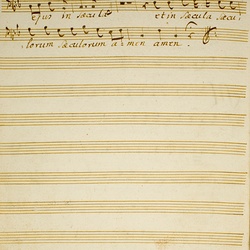 ejus in sæcula et in sæcula sæcu=
lorum sæculorum a=men amen.